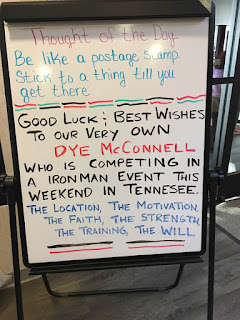 Thought of the Day
Be like a postage stamp.
Stick to a thing till you
get there
GOOD LUCK & BEST WISHES
TO OUR VERY OWN
DYE MCCONNELL
WHO IS COMPETING IN
A IRONMAN EVENT THIS
WEEKEND IN TENNESEE.
THE LOCATION, THE MOTIVATION,
THE FAITH, THE STRENGTH,
THE TRAINING, THE WILL